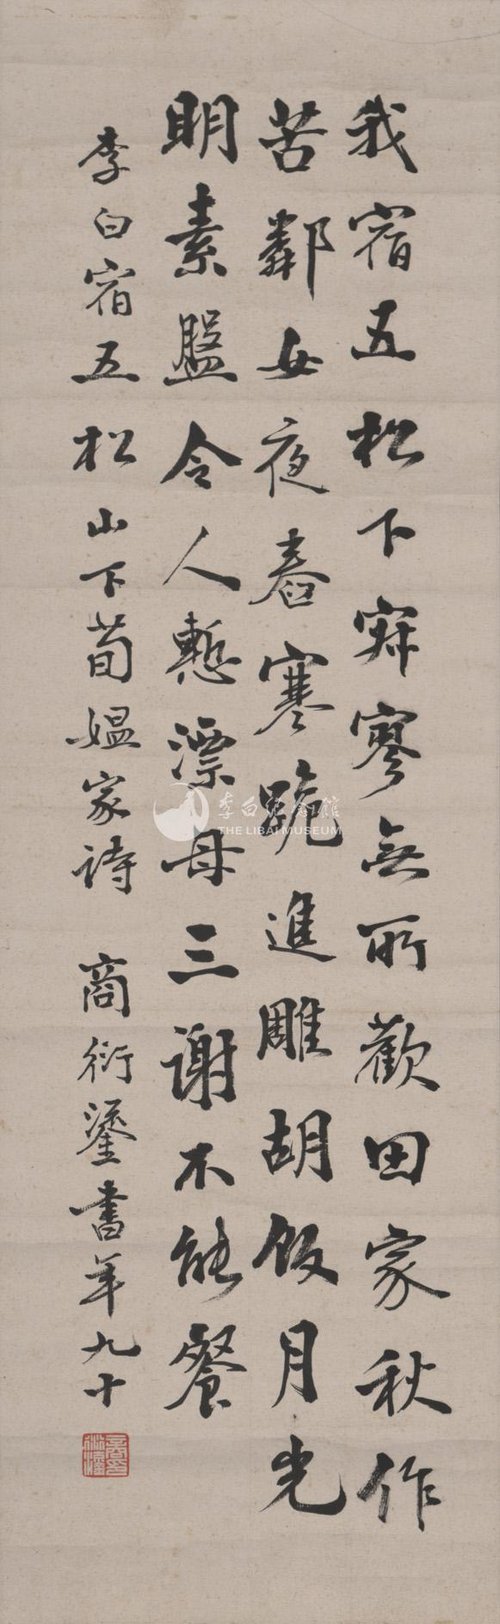 我宿五松下寂寥無所歡田家秋作
苦鄰女夜舂寒跪進雕胡飯月光
明素盤令人慙漂母三謝不能餐
李白宿五松山下荀媼家詩 商衍鎏書年九十
李白纪念馆
THE LIBAI MUSEUM